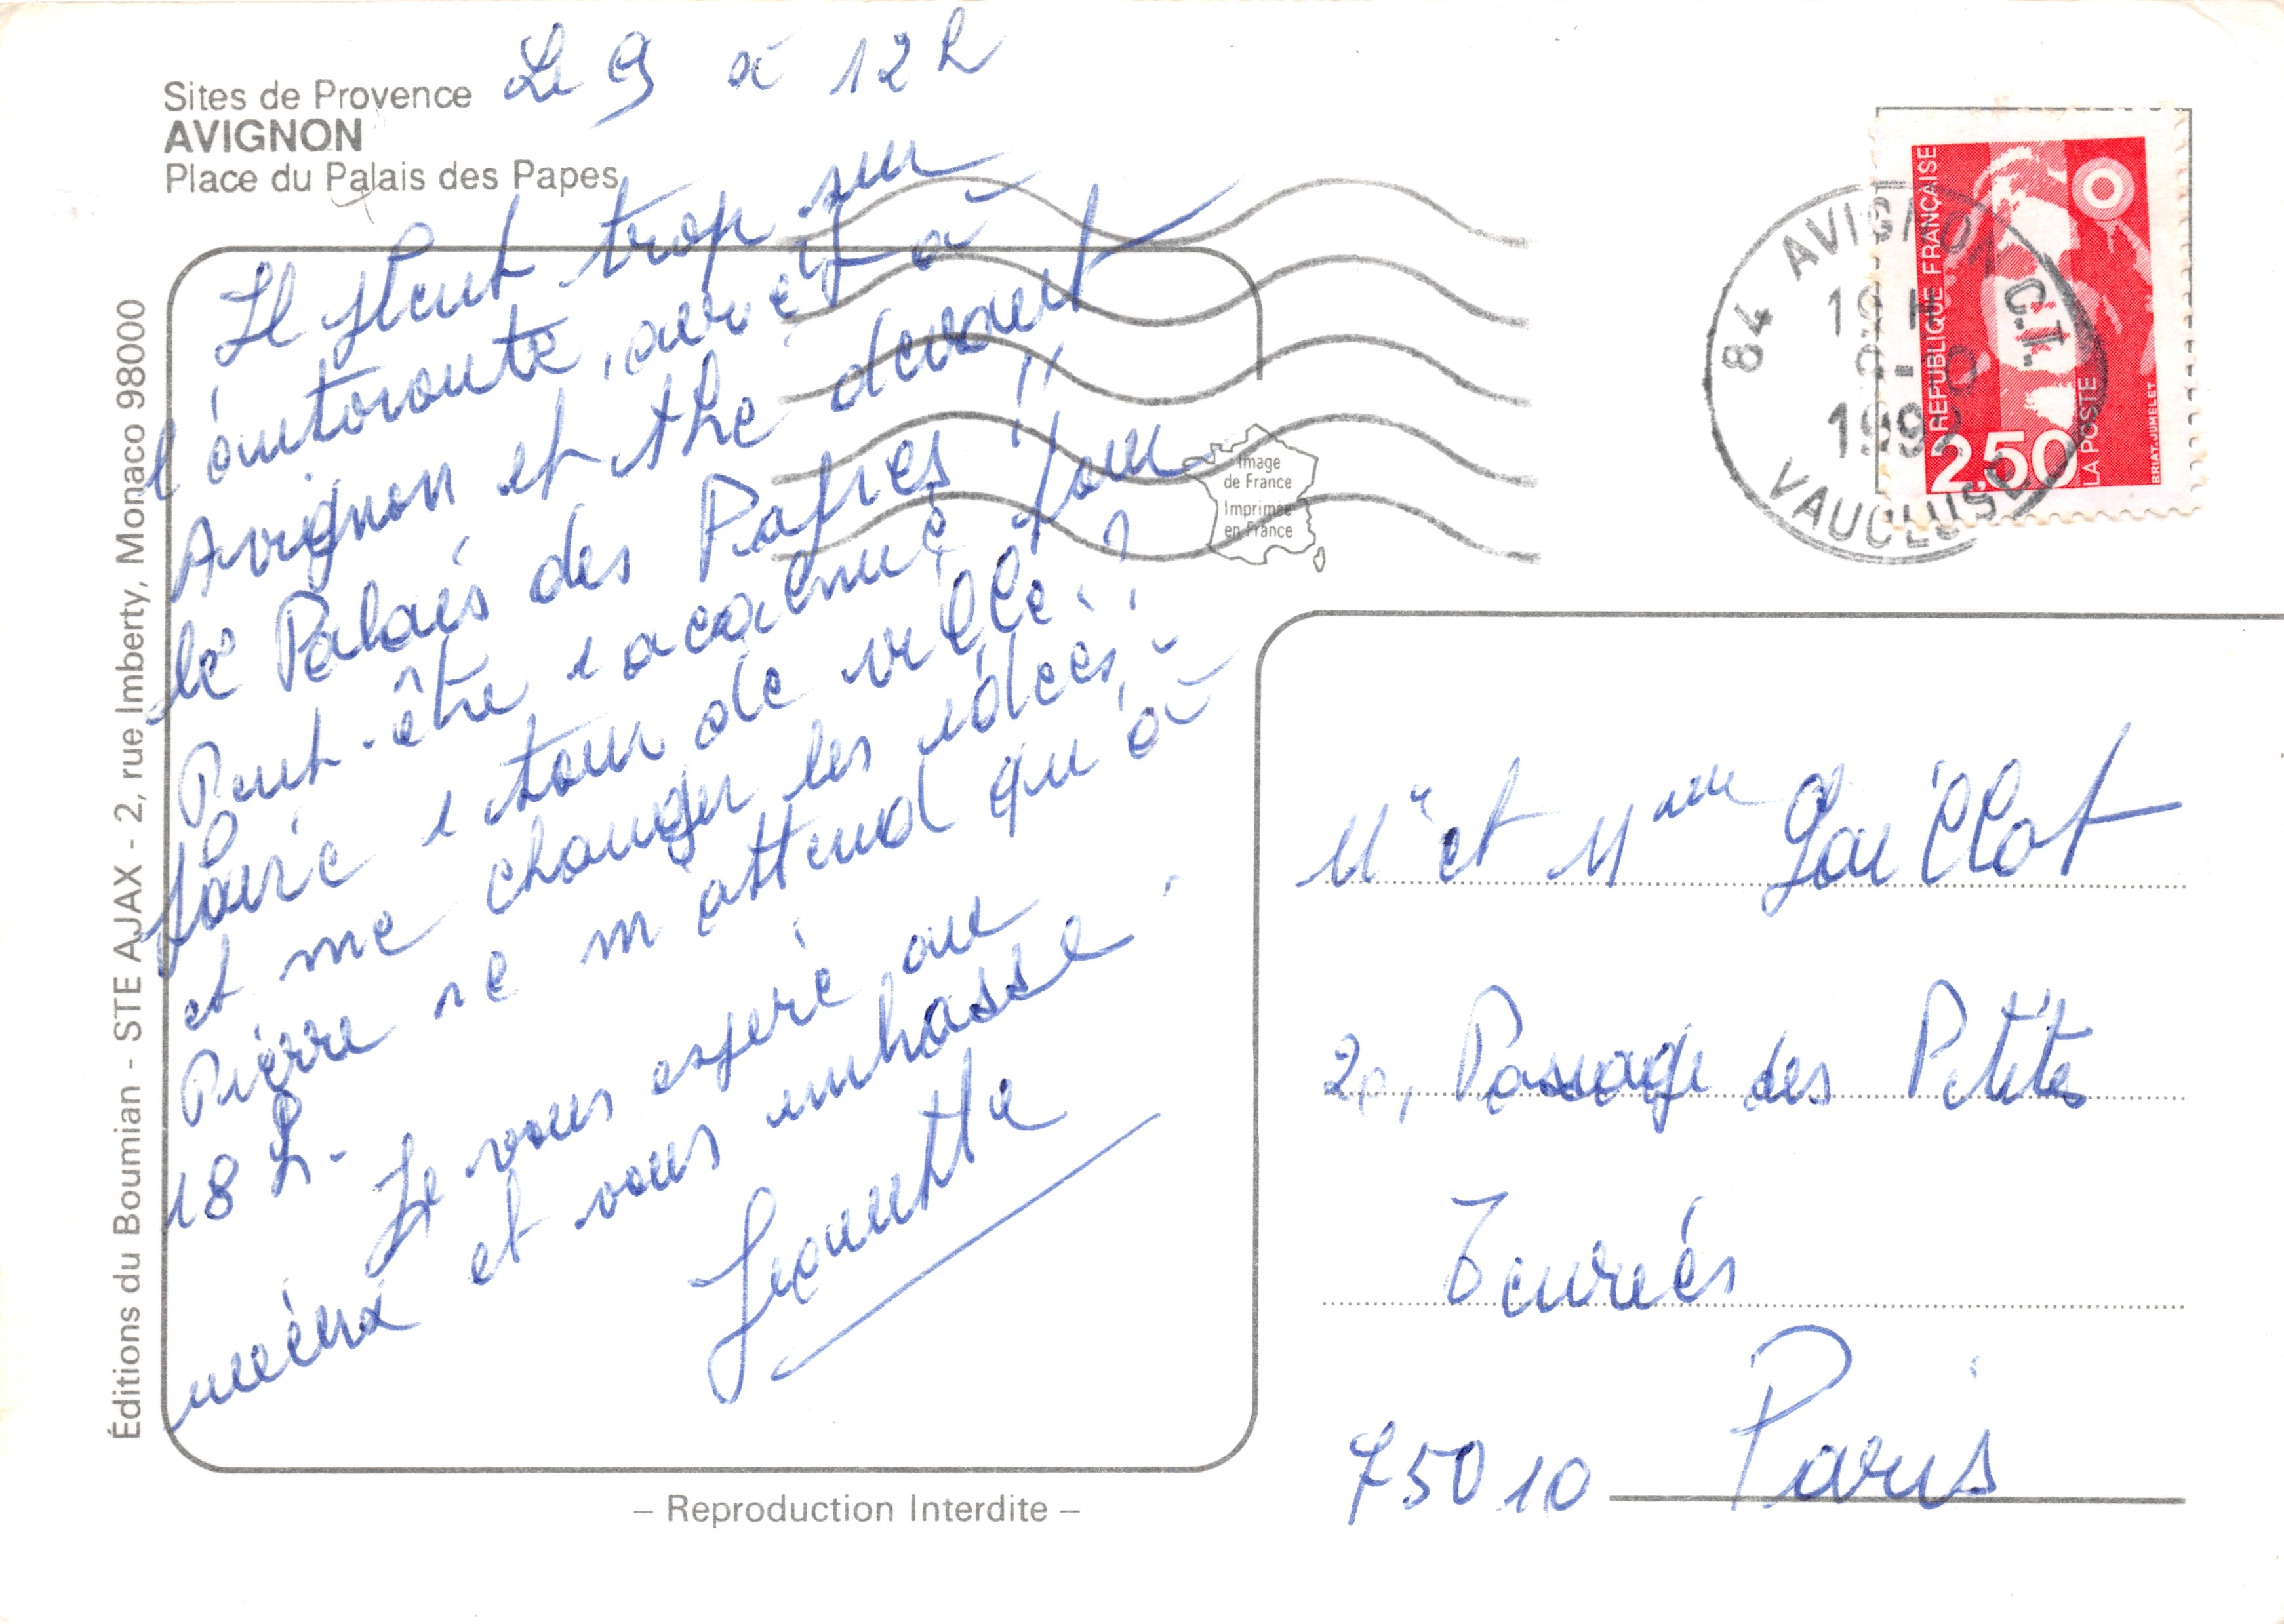 Sites de Provence
AVIGNON
Place du Palais des Papes
Le 9 à 12 h
Il pleut trop sur
l'autoroute, arrêt à
Avignon et thé devant
le Palais des Papes !!
Peut-être 1 acalmie pour
faire 1 tour de ville
et me changer les idées ?
Pierre ne m'attend qu'à
18 h.
Je vous espère au
mieux et vous embrasse.
Jeannette
Éditions du Boumian - STE AJAX - 2, rue Imberty, Monaco 98000
– Reproduction Interdite –
Image
de France
Imprimée
en France
84 AVIGNON C.T.
VAUCLUSE
RÉPUBLIQUE FRANÇAISE
2,50
LA POSTE
BRIAT-JUMELET
Mr et Mme Gaillot
20, Passage des Petites
Ecuries
75010 Paris